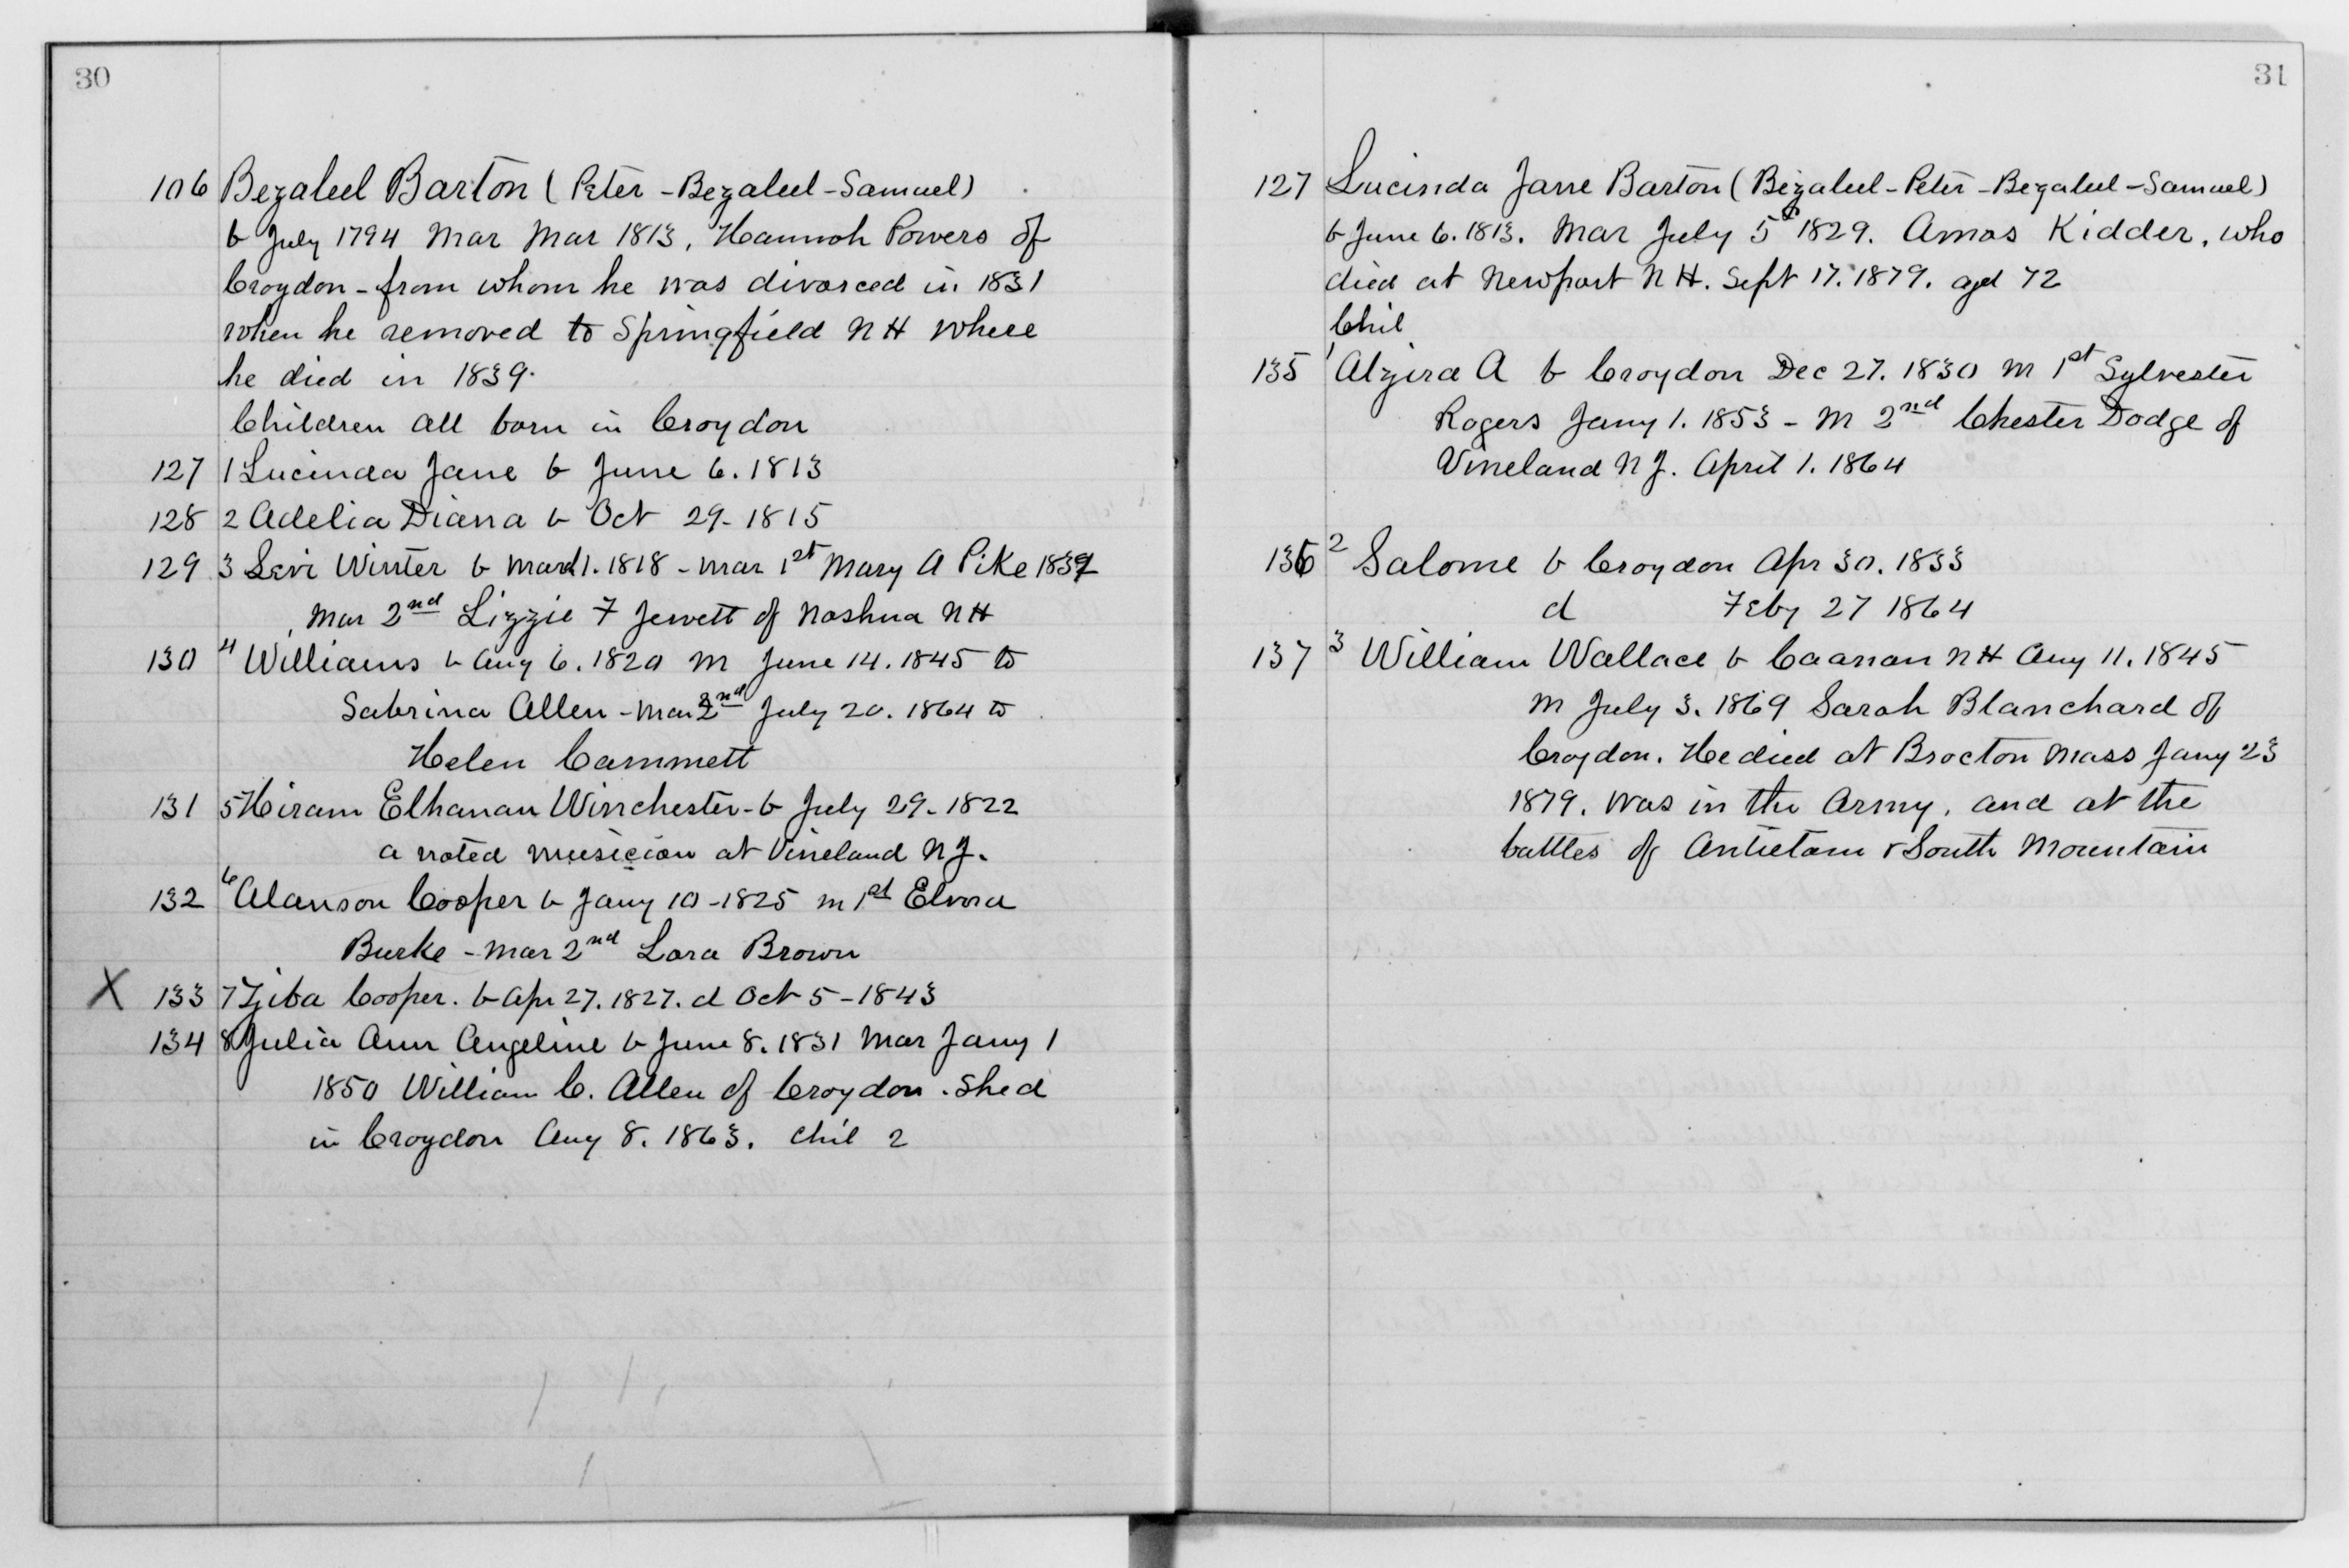 30
106 Bezaleel Barton (Peter - Bezaleel - Samuel)
b July 1794 Mar Mar 1813, Hannah Powers of
Croydon - from whom he was divorced in 1831
when he removed to Springfield N H where
he died in 1839.
Children all born in Croydon
127 1 Lucinda Jane b June 6. 1813
128 2 Adelia Diana b Oct 29 - 1815
129 3 Levi Winter b March 1. 1818 - mar 1st Mary A Pike 1839
Mar 2nd Lizzie F Jewett of Nashua N H
130 4 Williams b Aug 6. 1820 m June 14. 1845 to
Sabrina Allen - mar 2nd July 20. 1864 to
Helen Cammett
131 5 Hiram Elhanan Winchester - b July 29 - 1822
a noted musician at Vineland N J.
132 6 Alanson Cooper b Jany 10 - 1825 m 1st Elvora
Burke - mar 2nd Lora Brown
X 133 7 Ziba Cooper. b Apr 27. 1827. d Oct 5 - 1843
134 8 Julia Ann Angeline b June 8. 1831 Mar Jany 1
1850 William C. Allen of Croydon. She d
in Croydon Aug 8. 1863. Chil 2
31
127 Lucinda Jane Barton (Bezaleel - Peter - Bezaleel - Samuel)
b June 6. 1813. Mar July 5 1829. Amos Kidder, who
died at Newport N H. Sept 17. 1879. agd 72
Chil
135 1 Alzira A b Croydon Dec 27. 1830 m 1st Sylvester
Rogers Jany 1. 1853 - m 2nd Chester Dodge of
Vineland N J. April 1. 1864
136 2 Salome b Croydon Apr 30. 1833
d Feby 27 1864
137 3 William Wallace b Caanan N H Aug 11. 1845
m July 3. 1869 Sarah Blanchard of
Croydon. He died at Brocton Mass Jany 23
1879. Was in the Army, and at the
battles of Antietam & South Mountain